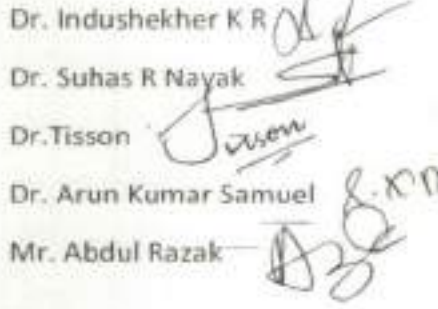 Dr. Indushekher K R
Dr. Suhas R Nayak
Dr.Tisson
Dr. Arun Kumar Samuel
Mr. Abdul Razak